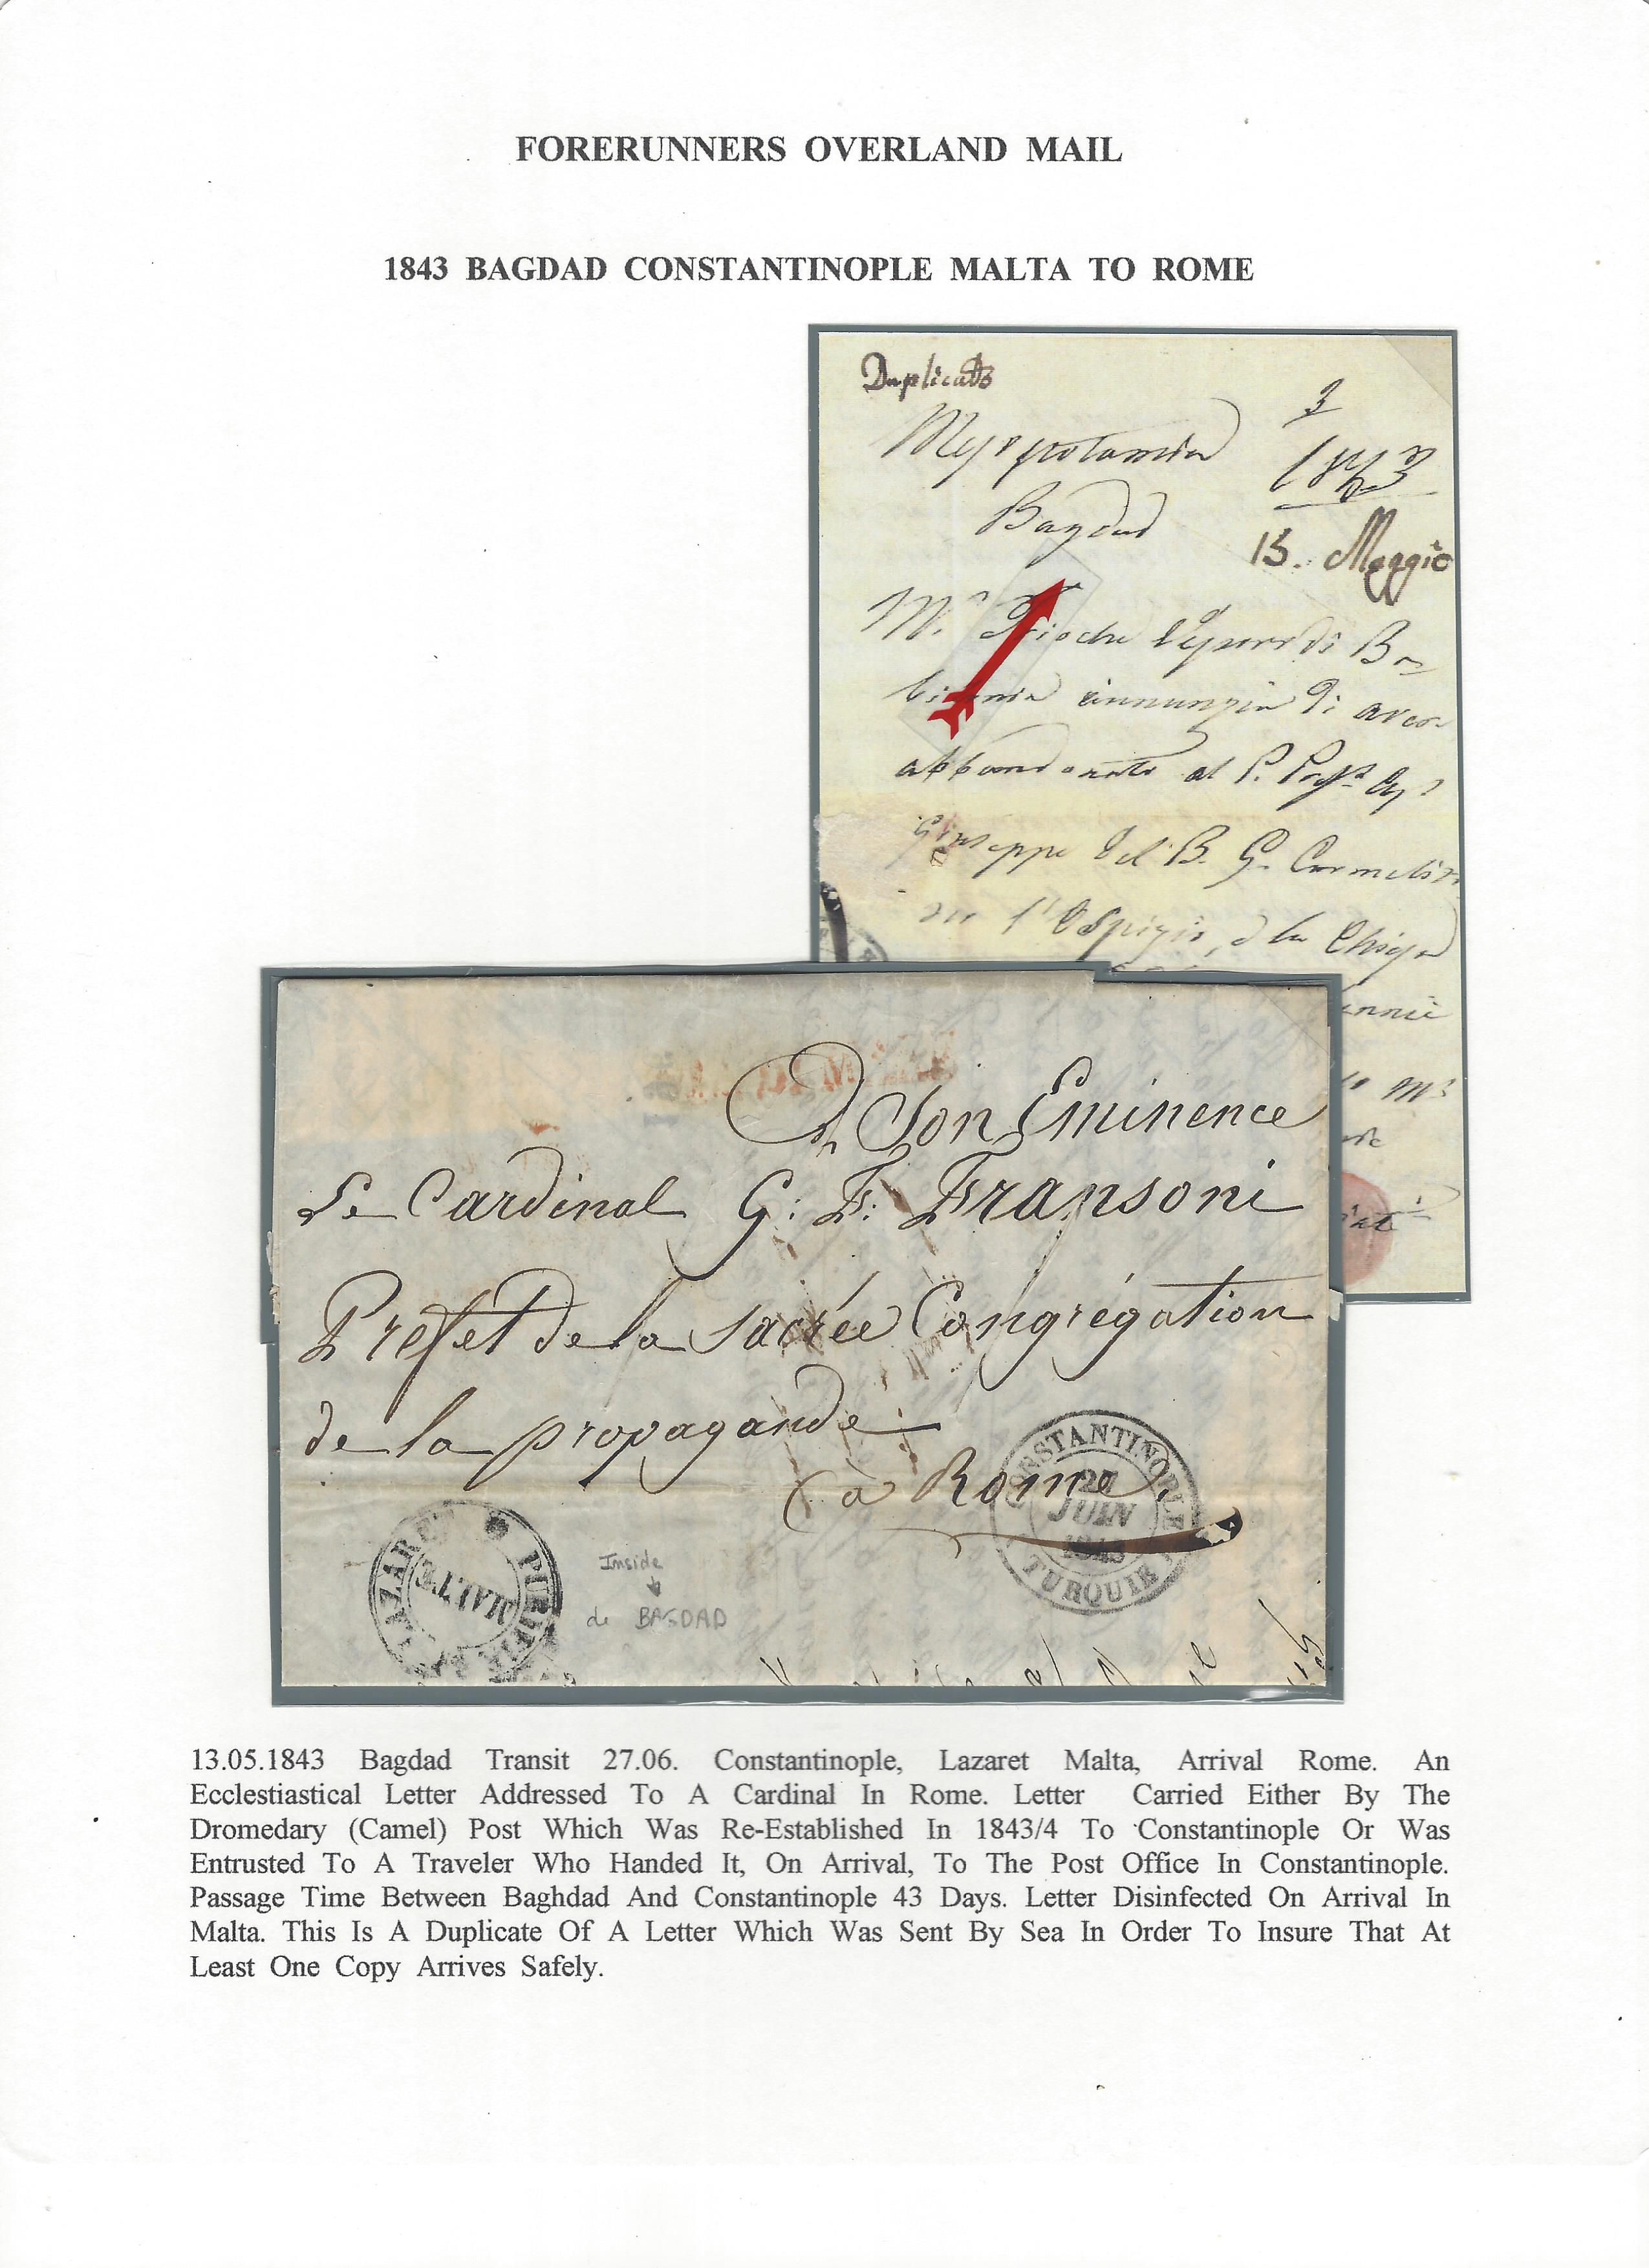 FORERUNNERS OVERLAND MAIL
1843 BAGDAD CONSTANTINOPLE MALTA TO ROME
Duplicato
3
Mesopotamia
1843
Bagdad
13. Maggio
M.r Trioche Vescovo di Ba-
bilonia rinunzia di aver
abbandonato al P. Pref.o Ap.
Giuseppe del B. G. Carmelit.
l'Ospizio, e la Chiesa
A Son Eminence
Le Cardinal G: F: Fransoni
Préfet de la Sacrée Congrégation
de la propagande
à Rome
CONSTANTINOPLE
27
JUIN
1843
TURQUIE
LAZARET
MALTE
Inside
de BAGDAD
13.05.1843 Bagdad Transit 27.06. Constantinople, Lazaret Malta, Arrival Rome. An
Ecclestiastical Letter Addressed To A Cardinal In Rome. Letter Carried Either By The
Dromedary (Camel) Post Which Was Re-Established In 1843/4 To Constantinople Or Was
Entrusted To A Traveler Who Handed It, On Arrival, To The Post Office In Constantinople.
Passage Time Between Baghdad And Constantinople 43 Days. Letter Disinfected On Arrival In
Malta. This Is A Duplicate Of A Letter Which Was Sent By Sea In Order To Insure That At
Least One Copy Arrives Safely.